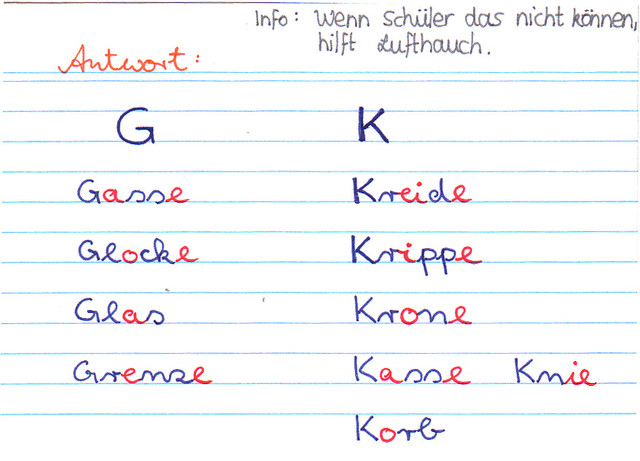 Info: Wenn Schüler das nicht können,
hilft Lufthauch.
Antwort:
G K
Gasse Kreide
Glocke Krippe
Glas Krone
Grenze Kasse Knie
Korb